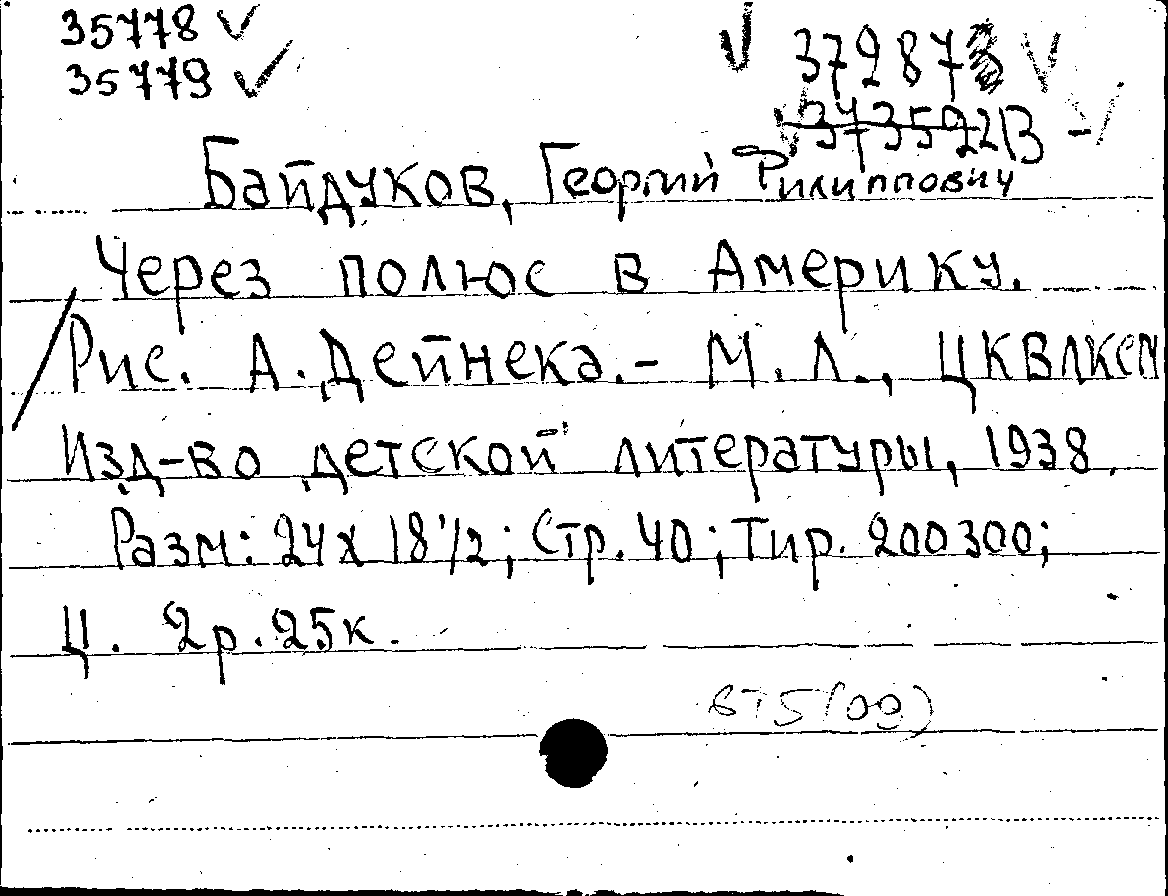 35778 ✓
35779 ✓
37287
Байдуков, Георгий Филиппович
Через полюс в Америку.
Рис. А. Дейнека. - М. Л., ЦКВЛКСМ
Изд-во детской литературы, 1938.
Разм: 24х18 1/2; Стр. 40; Тир. 200300;
Ц. 2р. 25к.